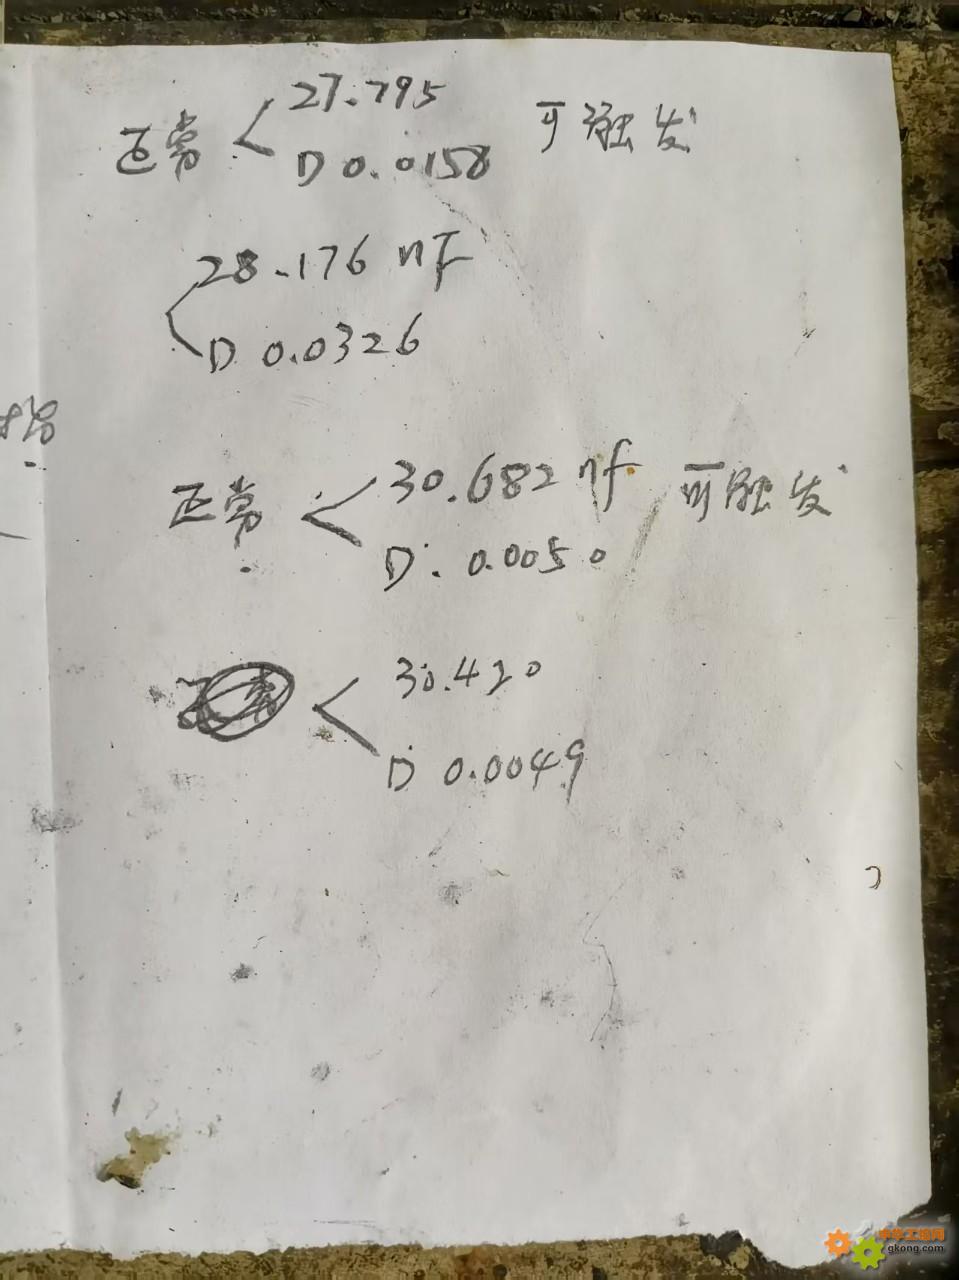 27.795
正常 可触发
D 0.0158
28.176 nf
D 0.0326
30.682 nf
正常 可触发
D: 0.0050
30.420
D 0.0049
中华工控网
gkong.com